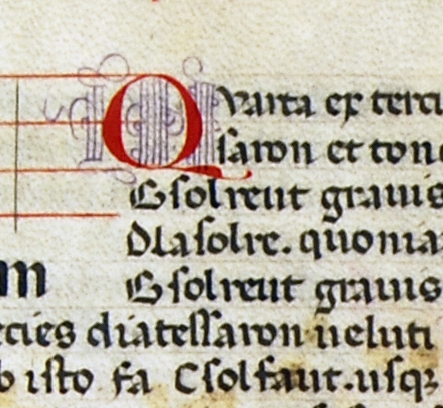 Quarta ex terci
saron et tono
Gsolreut grauis
Dlasolre. quonia
m
Gsolreut grauis
ecies diatessaron ueluti
b isto fa Csolfaut. usqꝫ